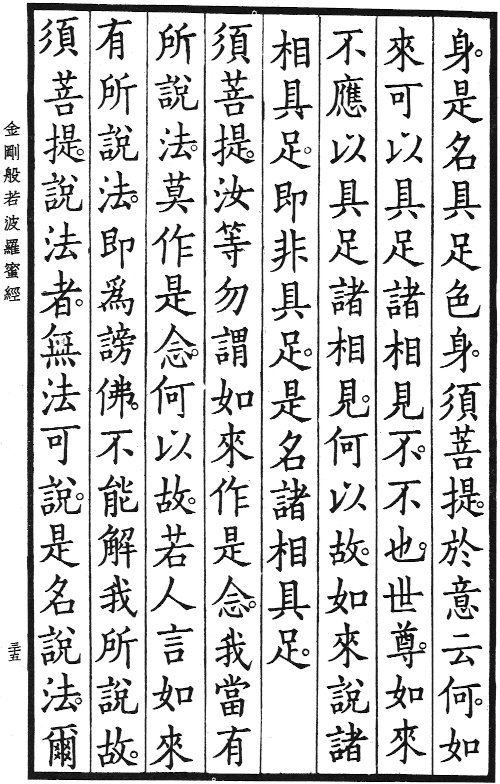 身。是名具足色身。須菩提。於意云何。如
來可以具足諸相見不。不也。世尊。如來
不應以具足諸相見。何以故。如來說諸
相具足。即非具足。是名諸相具足。
須菩提。汝等勿謂如來作是念。我當有
所說法。莫作是念。何以故。若人言如來
有所說法。即為謗佛。不能解我所說故。
須菩提。說法者。無法可說。是名說法。爾
金剛般若波羅蜜經
三五